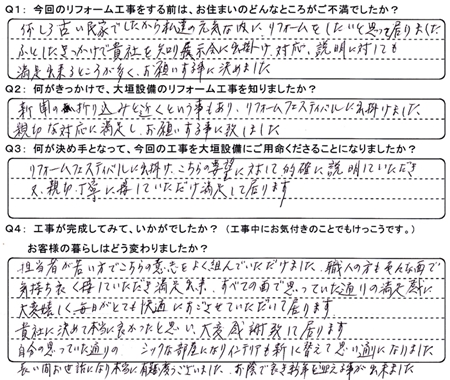 Q1: 今回のリフォーム工事をする前は、お住まいのどんなところがご不満でしたか?
何しろ古い民家でしたから私達の元気な内に、リフォームをしたいと思って居りました
ふとしたきっかけで貴社を知り展示会に出掛け、対応、説明に対しても
満足出来るところが多く、お願いする事に決めました
Q2: 何がきっかけで、大垣設備のリフォーム工事を知りましたか?
新聞の折り込みと近くという事もあり、リフォームフェスティバルに出掛けました。
親切な対応に満足し、お願いする事に致しました
Q3: 何が決め手となって、今回の工事を大垣設備にご用命くださることになりましたか?
リフォームフェスティバルに出掛け、こちらの要望に対して的確に説明していただき
又、親切、丁寧に接していただけ満足して居ります
Q4: 工事が完成してみて、いかがでしたか? (工事中にお気付きのことでもけっこうです。)
お客様の暮らしはどう変わりましたか?
担当者が若い方でこちらの意志をよく組んでいただけました、職人の方もそんな面で
気持ち良く接していただき満足出来、すべての面で思っていた通りの満足感に
大変嬉しく毎日がとても快適におごさせていただいて居ります
貴社に決めて本当に良かったと思い、大変感謝致して居ります
自分の思っていた通りの シックな部屋になりインテリアも新に替えて思い通りになりました。
長い間お世話になり本当に有難度うございました。お陰で良き新年を迎える事が出来ました